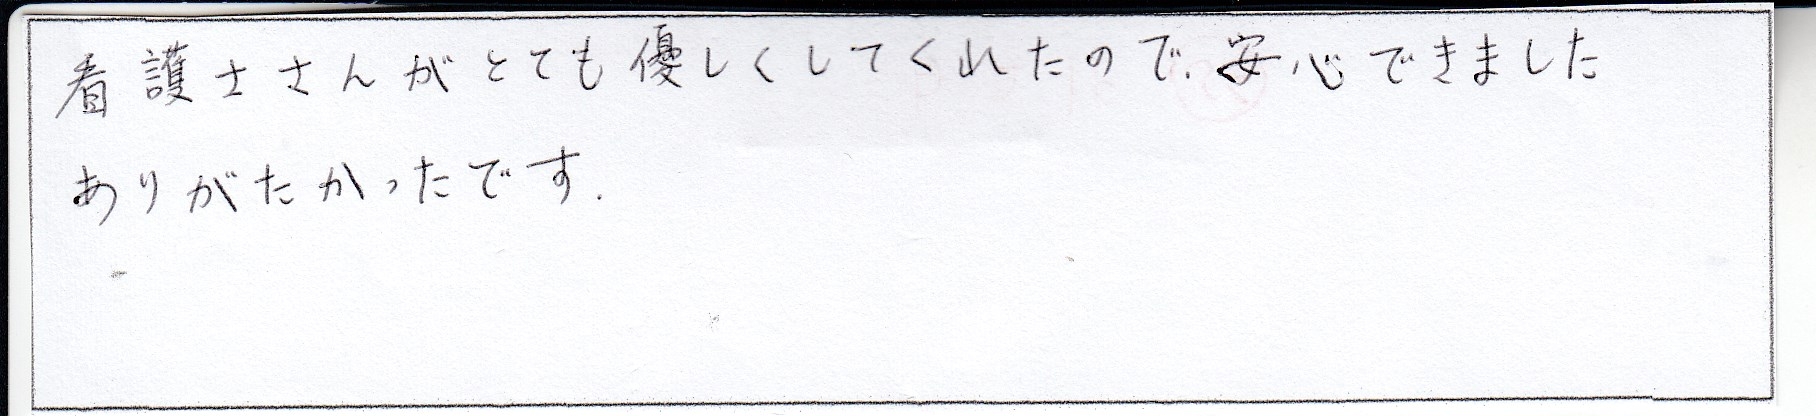 看護士さんがとても優しくしてくれたので、安心できました
ありがたかったです.